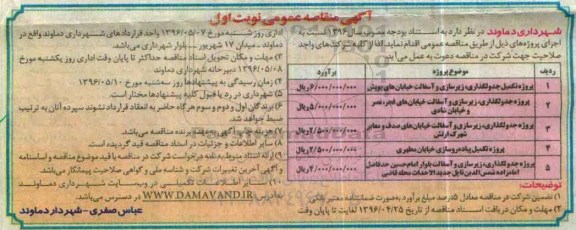 آگهی مناقصه عمومی نوبت اول
شهرداری دماوند در نظر دارد به استناد بودجه مصوب سال ۱۳۹۶ نسبت به
اجرای پروژه‌های ذیل از طریق مناقصه عمومی اقدام نماید. لذا از کلیه شرکت‌های واجد
صلاحیت جهت شرکت در مناقصه دعوت به عمل می‌آید
ردیف موضوع پروژه برآورد
۱ پروژه تکمیل جدولگذاری، زیرسازی و آسفالت خیابان‌های پویش ۶/۰۰۰/۰۰۰/۰۰۰ ریال
۲ پروژه جدولگذاری، زیرسازی و آسفالت خیابان‌های فجر، نصر و خیابان شادی ۵/۰۰۰/۰۰۰/۰۰۰ ریال
۳ پروژه جدولگذاری، زیرسازی و آسفالت خیابان‌های صدف و معابر شهرک ارتش ۴/۵۰۰/۰۰۰/۰۰۰ ریال
۴ پروژه تکمیل پیاده‌روسازی خیابان مطهری ۴/۵۰۰/۰۰۰/۰۰۰ ریال
۵ پروژه جدولگذاری، زیرسازی و آسفالت بلوار امام حسین حدفاصل امامزاده شمس‌الدین تا پل جدید الاحداث محله قاضی ۲/۰۰۰/۰۰۰/۰۰۰ ریال
توضیحات:
۱) تضمین شرکت در مناقصه معادل ۵ درصد مبلغ برآورد به‌صورت ضمانتنامه معتبر بانکی
۲) مهلت و مکان دریافت اسناد مناقصه از تاریخ ۱۳۹۶/۰۴/۲۵ لغایت تا پایان وقت
اداری روز شنبه مورخ ۱۳۹۶/۰۵/۰۷ واحد قراردادهای شهرداری دماوند واقع در
دماوند - میدان ۱۷ شهریور - بلوار شهرداری می‌باشد.
۳) مهلت و مکان تحویل اسناد مناقصه حداکثر تا پایان وقت اداری روز یکشنبه مورخ
۱۳۹۶/۰۵/۰۸ دبیرخانه شهرداری دماوند
۴) زمان رسیدگی به پیشنهادها روز سه‌شنبه مورخ ۱۳۹۶/۰۵/۱۰
۵) شهرداری در رد یا قبول کلیه پیشنهادها مختار است.
۶) برندگان اول و دوم و سوم هرگاه حاضر به انعقاد قرارداد نشوند سپرده آنان به ترتیب
ضبط خواهد شد.
۷) هزینه چاپ آگهی به‌عهده برنده مناقصه می‌باشد.
۸) سایر اطلاعات و جزئیات در اسناد مناقصه قید گردیده است.
۹) ارائه اسناد منوط به نامه درخواست شرکت در مناقصه با قید موضوع مناقصه و اساسنامه
و آگهی آخرین تغییرات شرکت و شناسه ملی و گواهی صلاحیت پیمانکار می‌باشد.
۱۰) سایر اطلاعات تکمیلی در وب‌سایت شهرداری دماوند
به آدرس WWW.DAMAVAND.IR در دسترس می‌باشد.
عباس صفری - شهردار دماوند